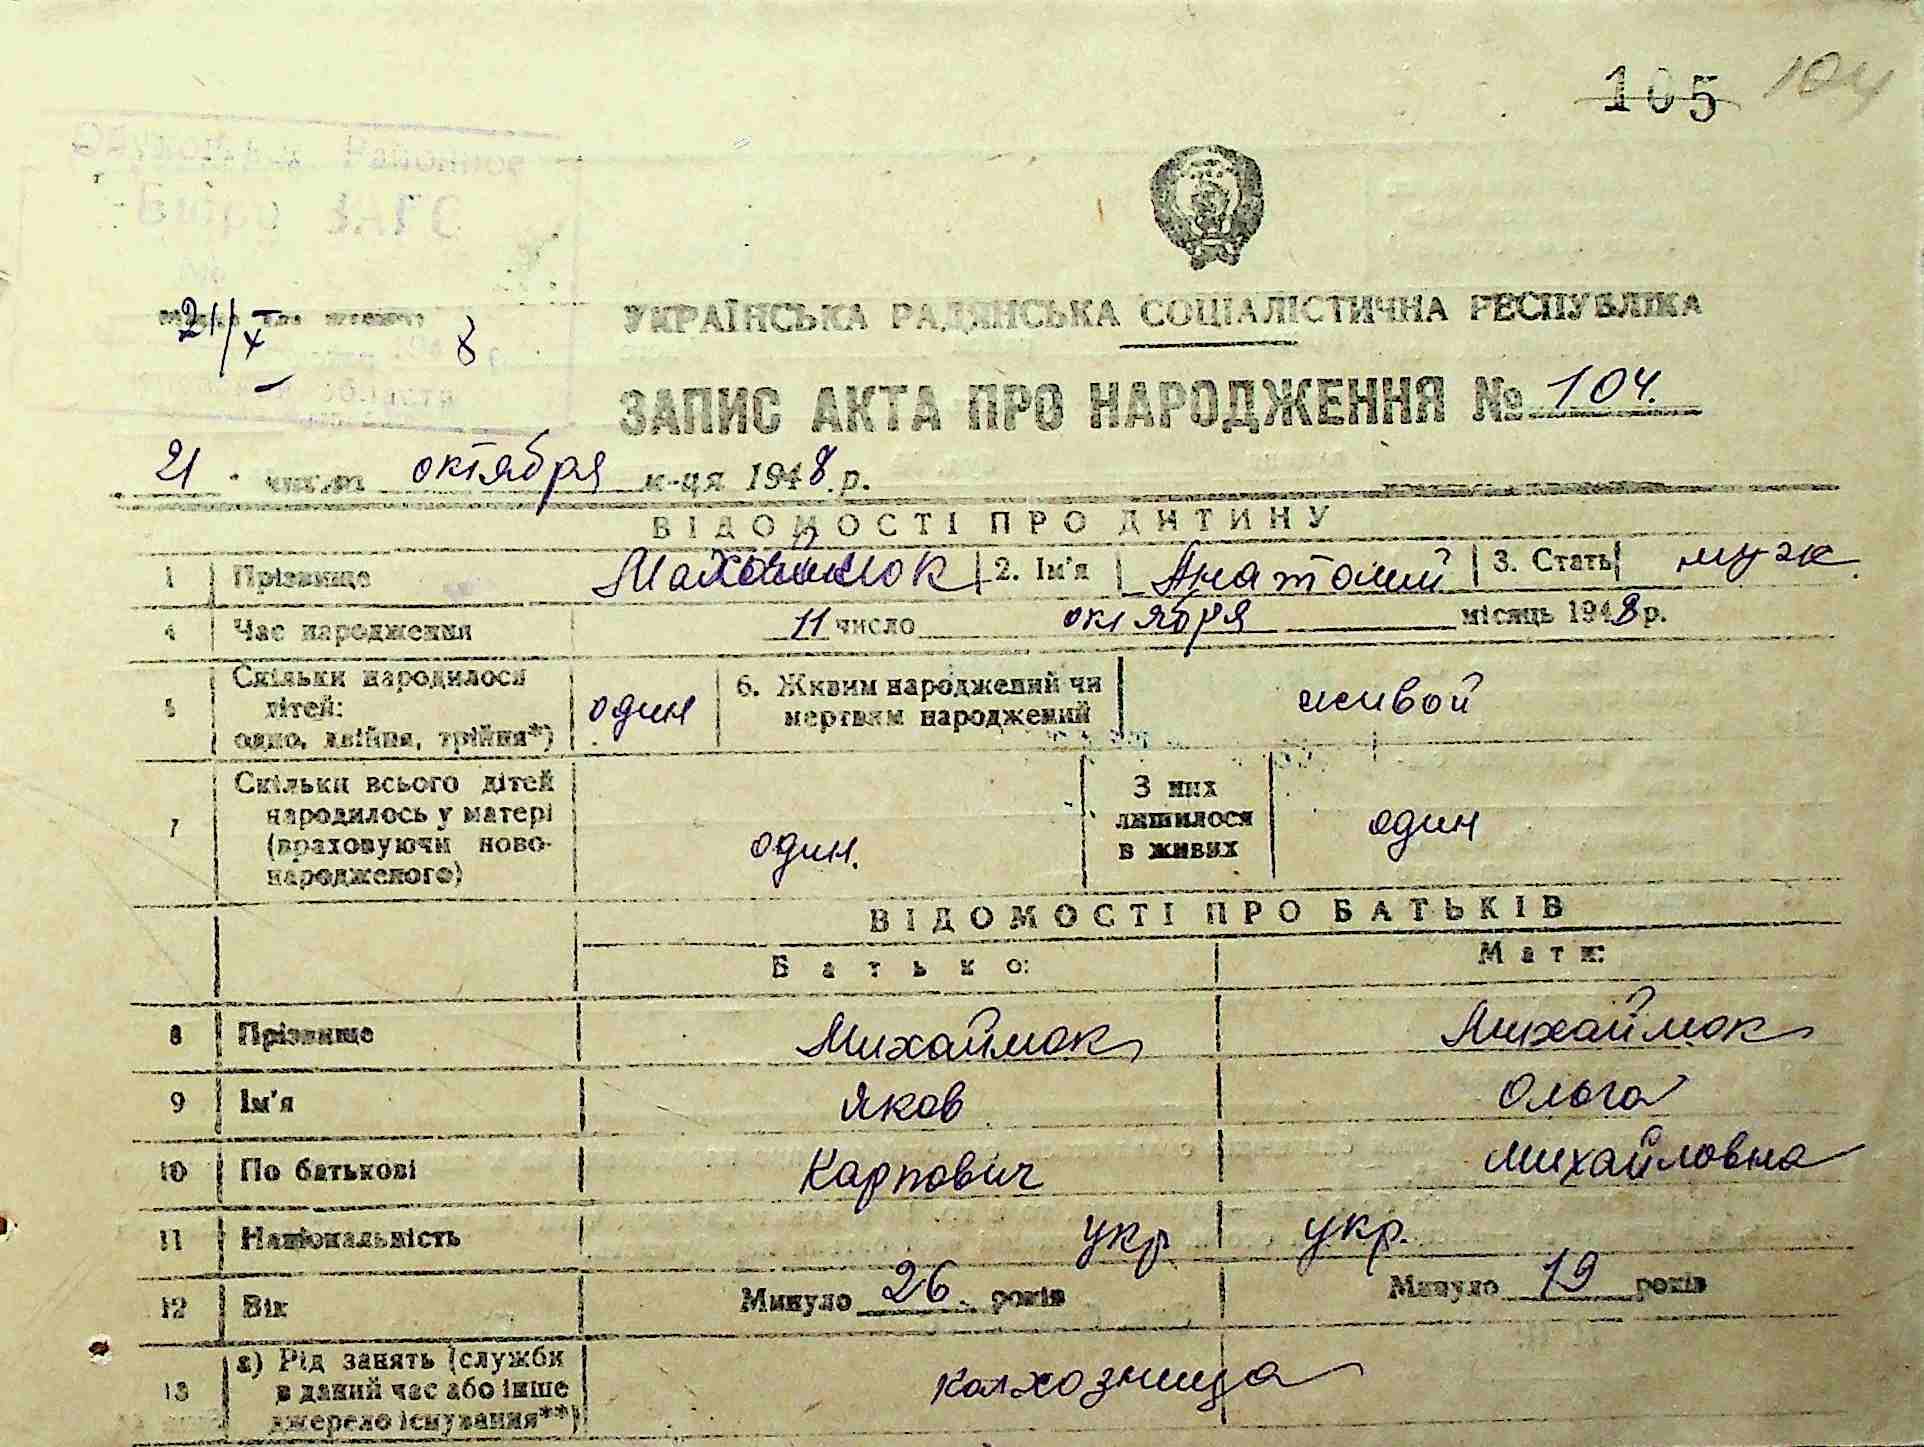 105 104
Районное
Бюро ЗАГС
21/X 8
УКРАЇНСЬКА РАДЯНСЬКА СОЦІАЛІСТИЧНА РЕСПУБЛІКА
ЗАПИС АКТА ПРО НАРОДЖЕННЯ № 104.
21 числа октября м-ця 1948 р.
ВІДОМОСТІ ПРО ДИТИНУ
1 Прізвище 2. Ім'я Анатолий 3. Стать муж.
4 Час народження 11 число октября місяць 1948 р.
5 Скільки народилося дітей: одно, двійня, трійня*) один 6. Живим народжений чи мертвим народжений живой
7 Скільки всього дітей народилось у матері (враховуючи новонародженого) один. З них лишилося в живих один
ВІДОМОСТІ ПРО БАТЬКІВ
Батько: Мати:
8 Прізвище Михаймок Михаймок
9 Ім'я Яков Ольга
10 По батькові Карпович Михайловна
11 Національність укр укр.
12 Вік Минуло 26 років Минуло 19 років
13 а) Рід занять (служби в даний час або інше джерело існування**) колхозница